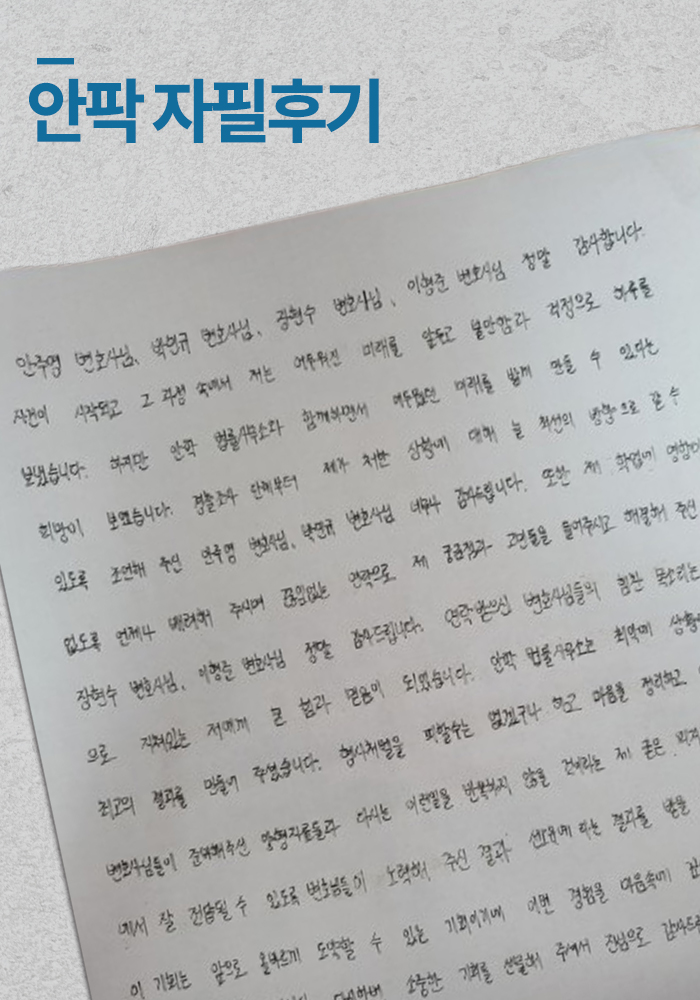 안팍 자필후기
안주영 변호사님, 박민규 변호사님, 장현수 변호사님, 이형준 변호사님 정말 감사합니다.
사건이 시작되고 그 과정 속에서 저는 어두워진 미래를 앞두고 불안함과 걱정으로 하루를
보냈습니다. 하지만 안팍 법률사무소와 함께하면서 어두웠던 미래를 밝게 만들 수 있다는
희망이 보였습니다. 경찰조사 단계부터 제가 처한 상황에 대해 늘 최선의 방향으로 갈 수
있도록 조언해 주신 안주영 변호사님, 박민규 변호사님 너무나 감사드립니다. 또한 제 학업에
없도록 언제나 배려해 주시며 끊임없는 연락으로 제 궁금점과 고민들을 들어주시고 해결해 주신
장현수 변호사님, 이형준 변호사님 정말 감사드립니다. 연락받으신 변호사님들의 힘찬 목소리는
으로 지쳐있는 저에게 큰 힘과 믿음이 되었습니다. 안팍 법률사무소는 최악의
최고의 결과를 만들어 주셨습니다. 형사처벌을 피할수는 없겠구나 하고 마음을 정리하고
변호사님들이 준비해주신 양형자료들과 다시는 이런일을 반복하지 않을 것이라는 제 굳은
에서 잘 전달될 수 있도록 변호사님들이 노력해 주신 결과 선고유예 라는 결과를 받을
이 기회는 앞으로 올바르게 도약할 수 있는 기회이기에 이번 경험을 마음속에
소중한 기회를 선물해 주셔서 진심으로